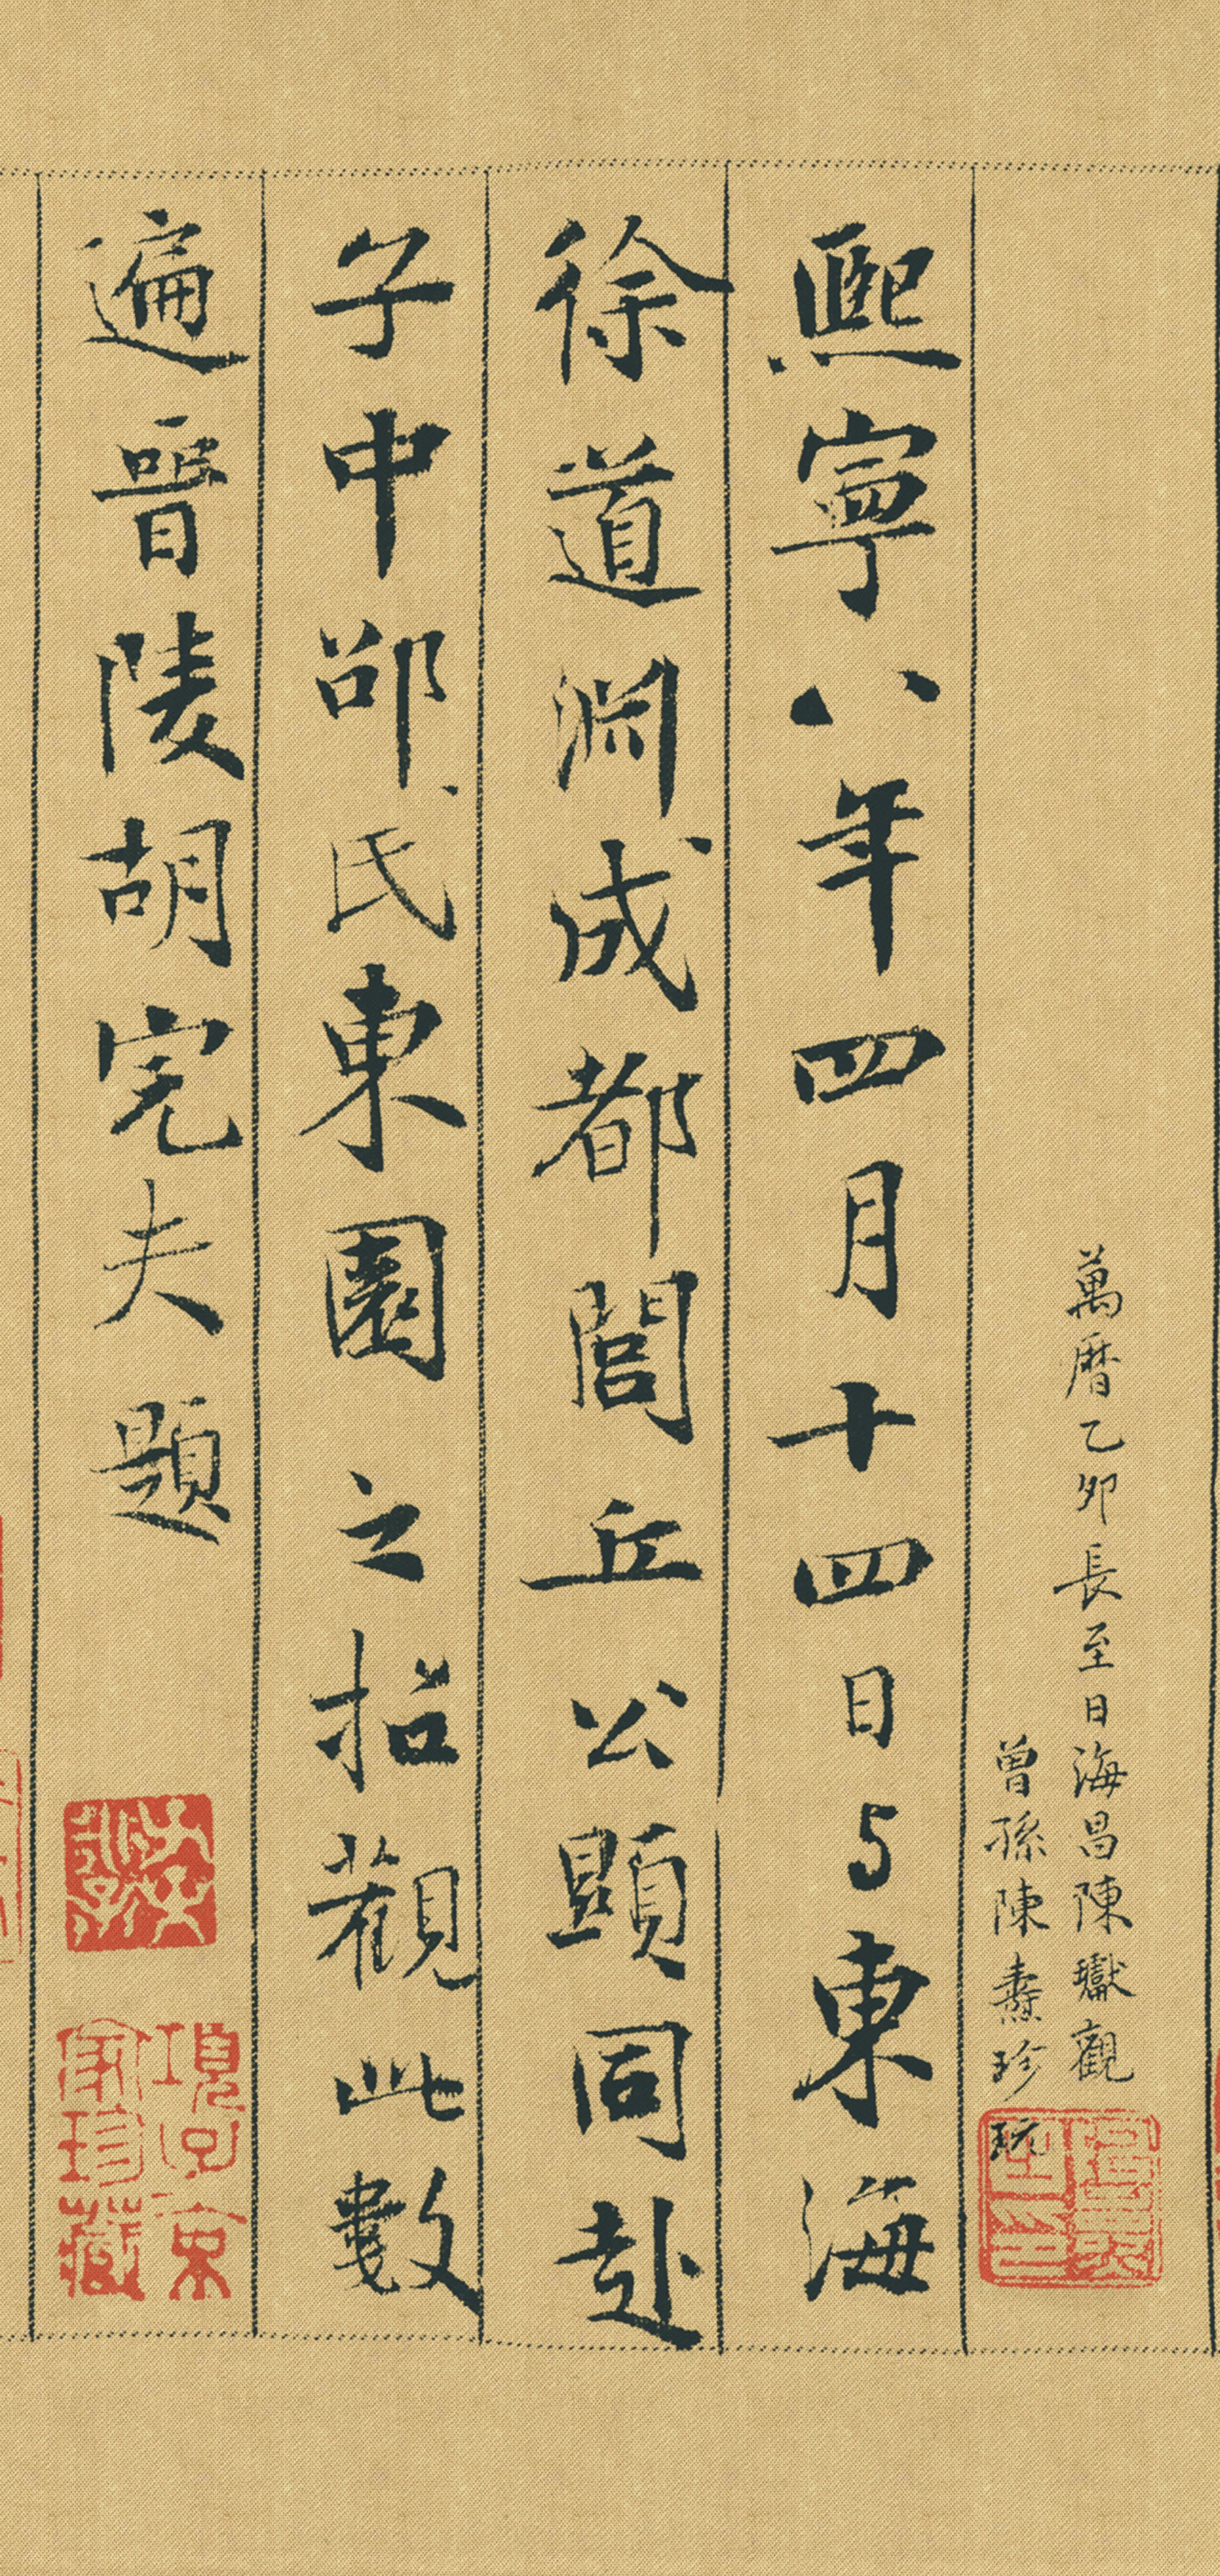 萬曆乙卯長至日海昌陳瓛觀
曾孫陳燾珍玩
熙寧八年四月十四日与東海
徐道渊成都閭丘公顯同赴
子中邵氏東園之招觀此數
遍晉陵胡完夫題
項子京
家珍藏